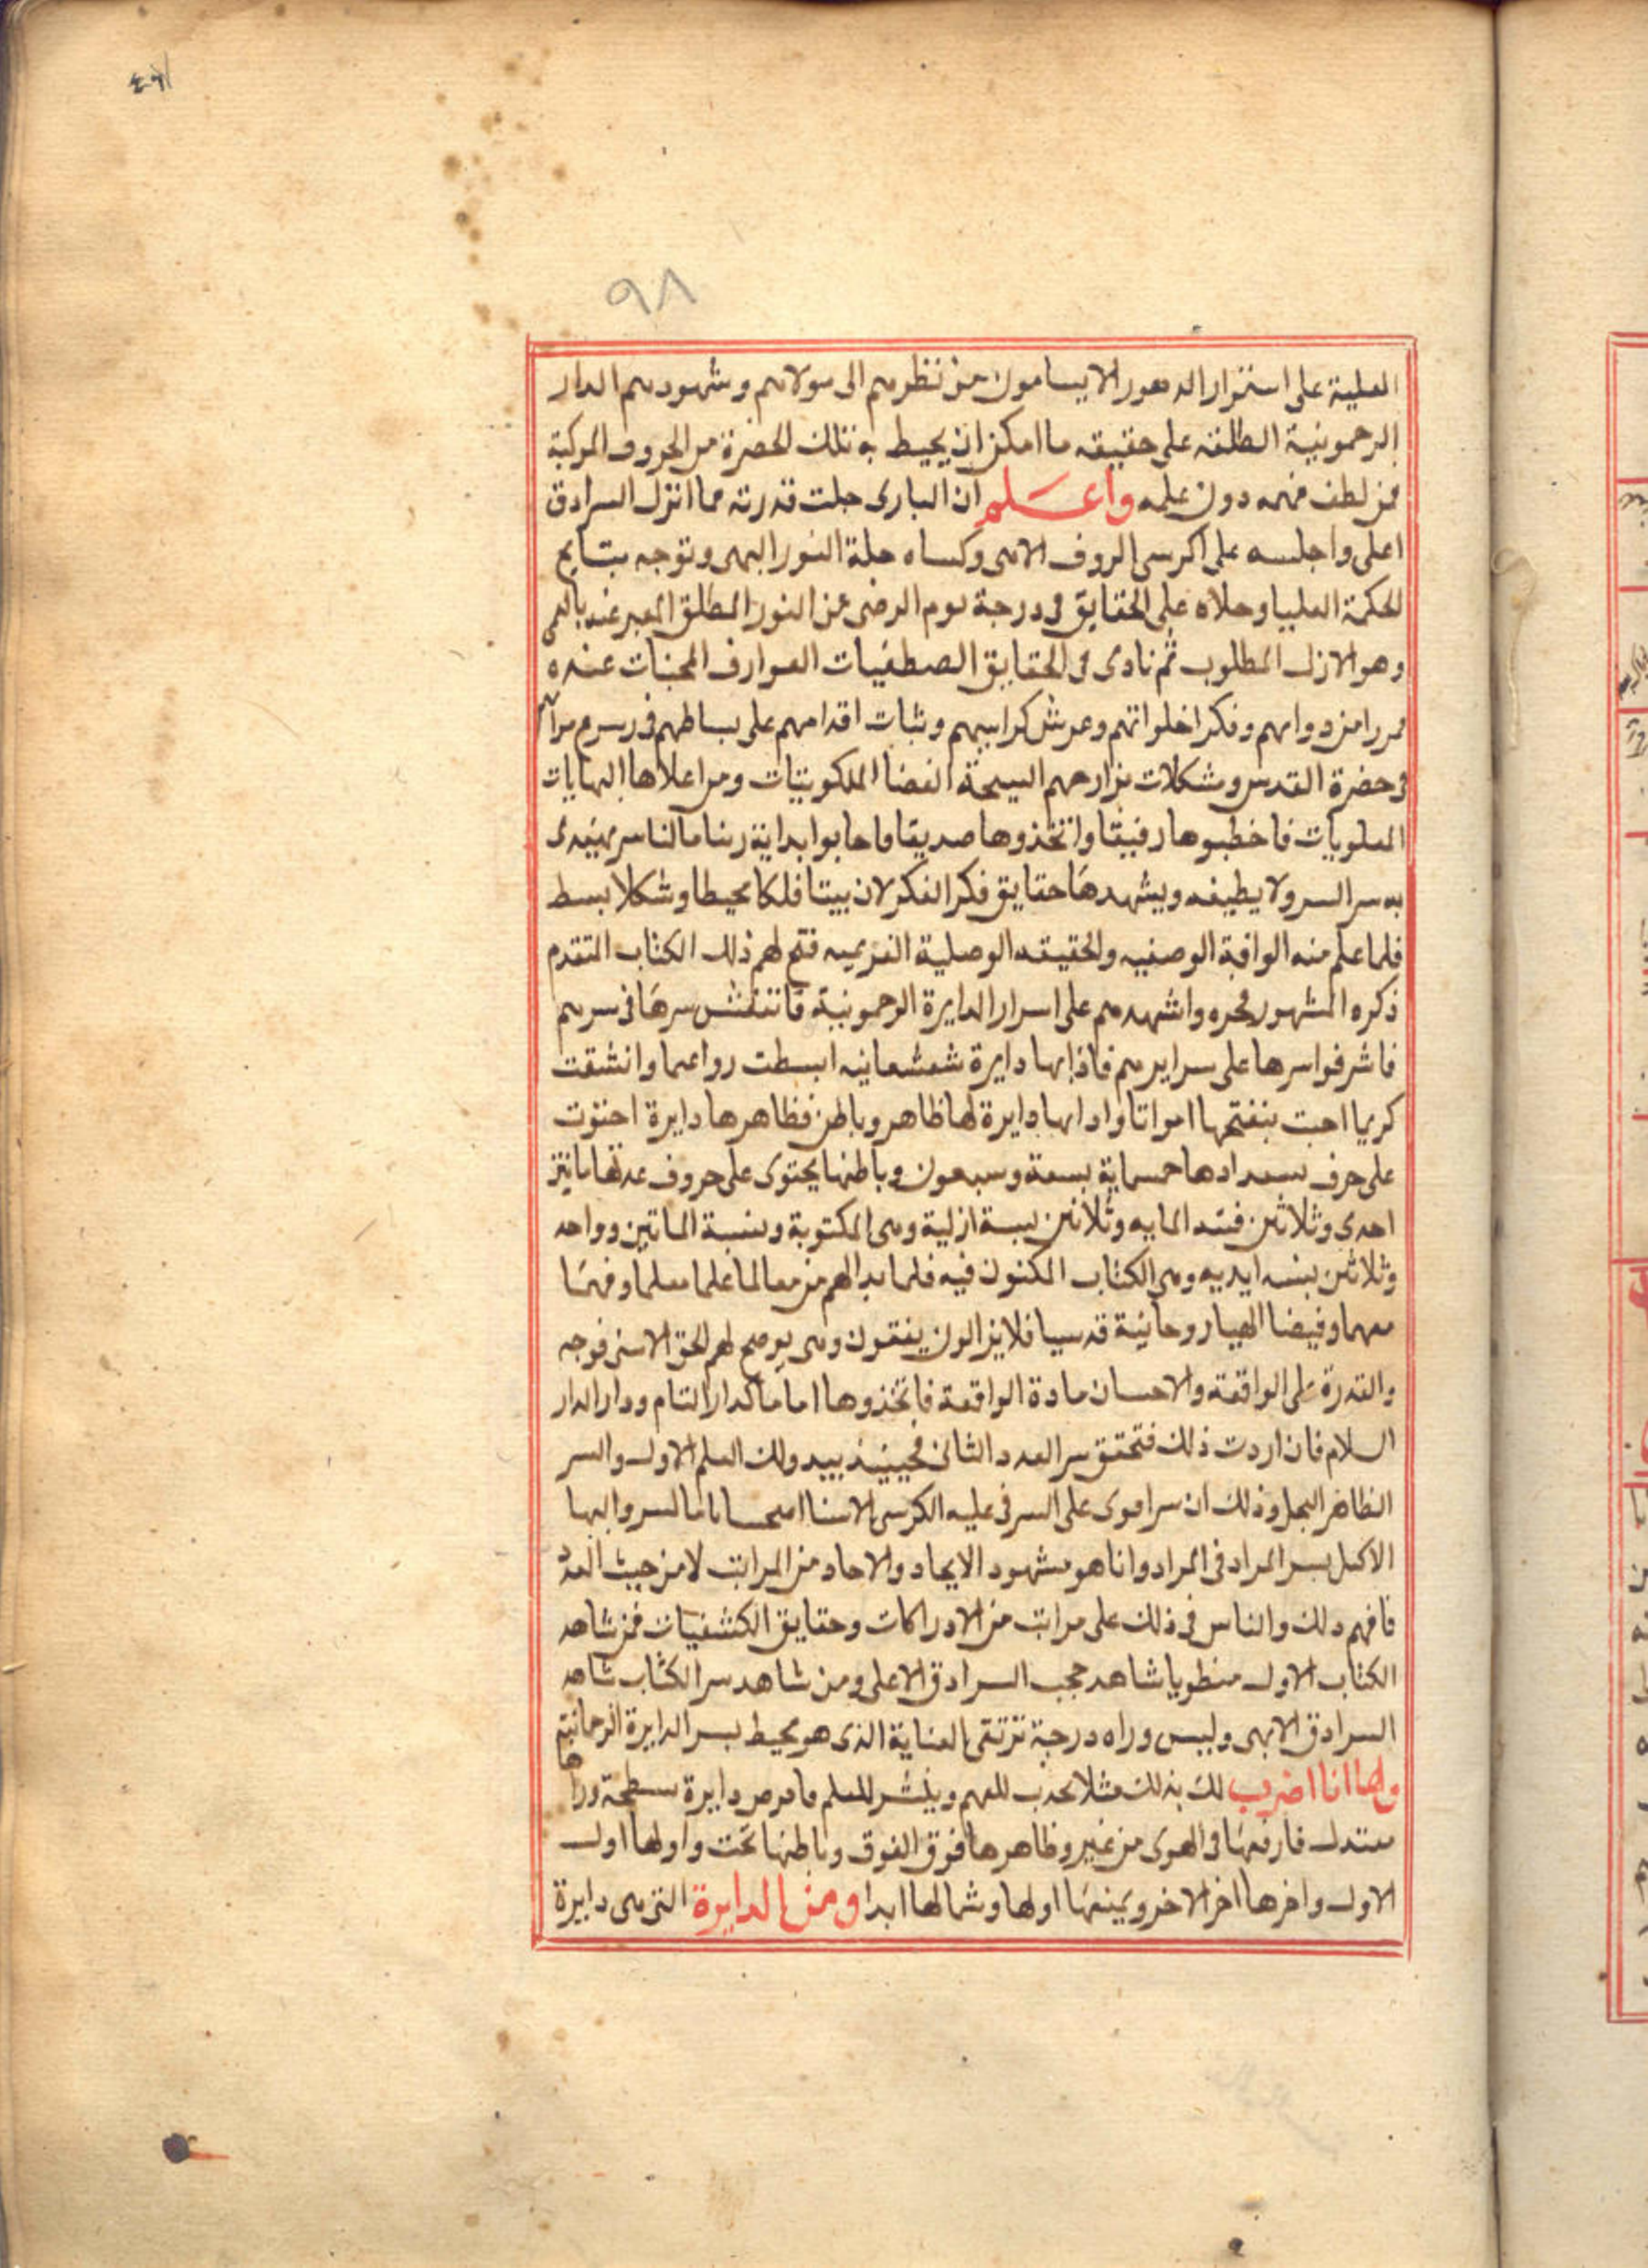 ٩٨
العلية على استمرار الدهور لا يسامون من نظرهم الى مولاهم وشهودهم الدار
الرحمونية المطلقه على حقيقه ما امكن ان يحيط به تلك الحضرة من الحروف المركبة
من لطف فهمه دون علمه واعلم ان البارى جلت قدرته مما انزل السرادق
اعلى واجلسه على اكرسى الروف الاسى وكساه حلة النور البهى وتوجه بتايج
الحكمة العليا وجلاه على الحقايق فى درجة يوم الرضى عن النور المطلق المعبر عنه بالعمى
وهو الازل المطلوب ثم نادى فى الحقايق المصطفيات العوارف المجنات عنده
وفكر اخلواتهم وعرش كراسيهم وثبات اقدامهم على بساطهم فى رسرم
فى حضرة القدس ومشكلات الفضا الملكوتيات ومر اعلاها النهايات
العلويات فاخطبوها رفيقا واتخذوها صديقا فاجابوا بداية ربنا ما لنا سر يهتدى
به سر السر ولا يطيفه ويشهدها حقايق فكر الفكر لان بيتا فلكا محيطا وشكلا بسط
فلما علم منه الوافية الوصفيه والحقيقه الوصلية فتح لهم ذلك الكتاب المتقدم
ذكره المشهور فحره واشهدهم على اسرار الدايرة الرحمونية فانتقش سرها فى سرهم
فاشرفوا سرها على سرايرهم فاذا بها دايرة شعشعانيه ابسطت رواعها وانشقت
كريما احبت بنفتحها امواتا واذا بها دايرة لها ظاهر وباطن فظاهرها دايرة احتوت
على حرف بسعدادها خمسماية بسعة وسبعون وباطنها يحتوى على حروف عدتها مايتين
احدى وثلاثين فسد المايه وثلاثين بسة ازلية وهى المكتوبة ونسبة الماتين وواحد
وثلاثين بنسه ابديه وهى الكتاب المكنون فيه فلما بدا لهم من معالما علما معلما وفهمًا
مفهما وفيضا الهيا روحانية قدسيا فلا يزالون ينفقون وهى يوضح لهم الحق الاسنى فوجه
والقدرة على الواقعة والاحسان مادة الواقعة فاتخذوها اماما كدار التام ودار الدار
السلام فان اردت ذلك فتحقق سر العدد الثانى فحينيذ يبدولك العلم الاول والسر
الظاهر البجل وذلك ان سرا هوى على السر فى عليه الكرسى الاسنا باما السر والبها
الاكل بسر المراد فى المراد وانا هو مشهود الايجاد والاحاد من المراتب لا من حيث العدد
فافهم ذلك والناس فى ذلك على مراتب من الادراكات وحقايق الكشفيات فمن شاهد
الكتاب الاول منطويا شاهد حجب السرادق الاعلى ومن شاهد سر الكتاب شاهد
السرادق الابهى وليس وراه درجة ترتقى العناية الذى هو محيط بسر الدايرة الرحمانية
وها انا اضرب لك بذلك مثلا يحذب للفهم وينشر للعلم دايرة سطحة وراها
معتدل فارفعها فى الهوى من غير وظاهرها فوق الفوق وباطنها تحت واولها اول
الاول واخرها اخر الاخر ويمينها اولها وشمالها ابدا ومن الدايرة التى هى دايرة